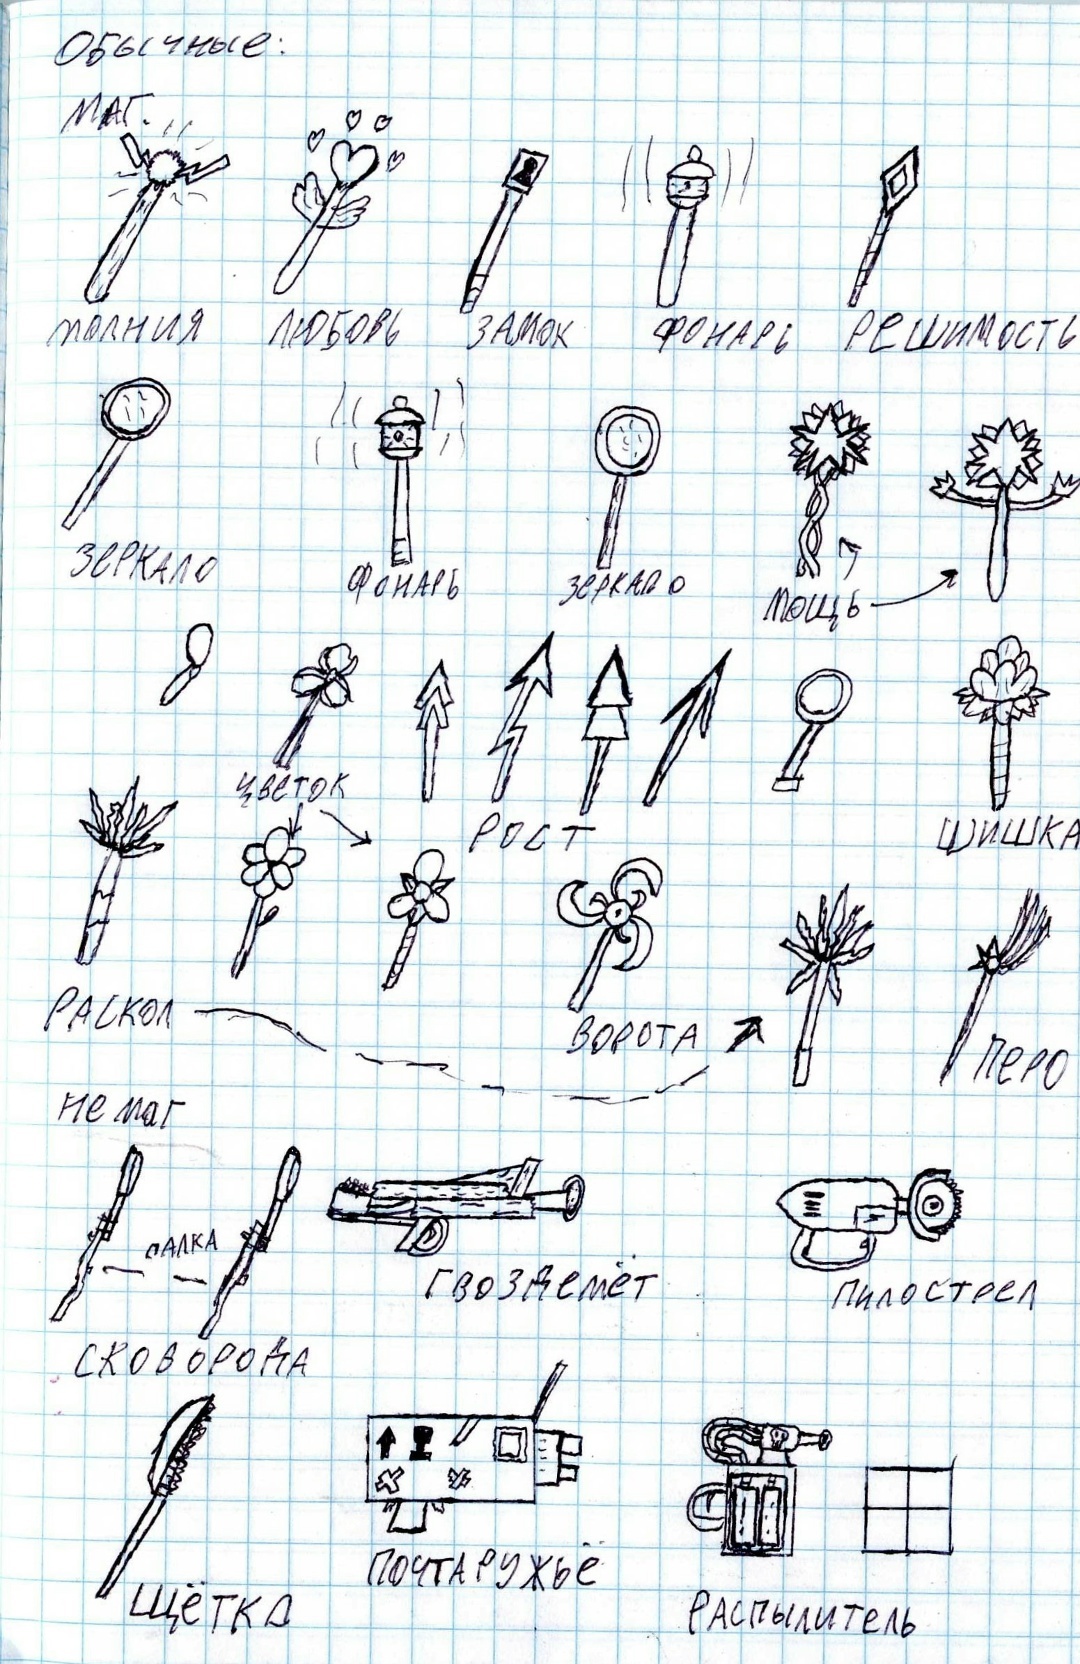 Обычные:
МАГ.
МОЛНИЯ ЛЮБОВЬ ЗАМОК ФОНАРЬ РЕШИМОСТЬ
ЗЕРКАЛО ФОНАРЬ ЗЕРКАЛО МОЩЬ
ЦВЕТОК РОСТ ШИШКА
РАСКОЛ ВОРОТА ПЕРО
НЕ МАГ
ПАЛКА ГВОЗДЕМЁТ ПИЛОСТРЕЛ
СКОВОРОДА
ЩЁТКА ПОЧТАРУЖЬЁ РАСПЫЛИТЕЛЬ